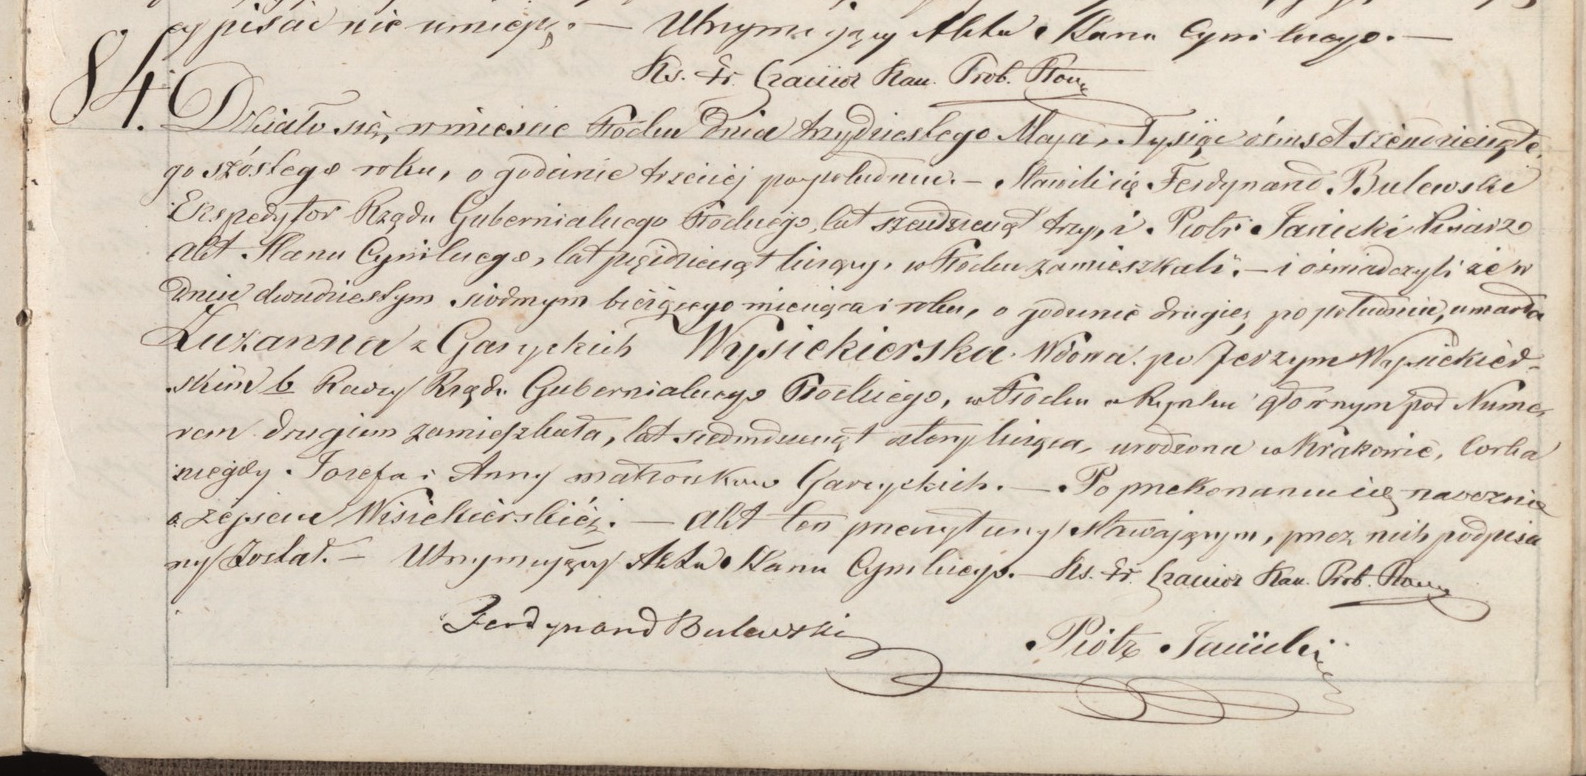 cy pisać nie umieją. — Utrzymujący Akta Stanu Cywilnego. —
Ks. Fr. Kan. Prob.
84. Działo się, w mieście Płocku dnia trzydziestego Maja, Tysiąc ośmset sześćdziesiąte,
go szóstego roku, o godzinie trzeciej po południu. — Stawili się Ferdynand Bulewski
Ekspedytor Rządu Gubernialnego Płockiego, lat sześćdziesiąt trzy, i Piotr Jasiński Pisarz
Akt Stanu Cywilnego, lat pięćdziesiąt liczący, w Płocku zamieszkali. — i oświadczyli że w
Dniu dwudziestym siódmym bieżącego miesiąca i roku, o godzinie drugiej po południu, umarła
Zuzanna z Garyckich Wysiekierska. Wdowa po Jerzym Wysiekier-
skim b Radcy Rządu Gubernialnego Płockiego, w Płocku w Rynku głównym pod Nume,
rem drugim zamieszkała, lat siedmdziesiąt cztery licząca, urodzona w Krakowie, Corka
niegdy Józefa i Anny małżonków Garyckich. — Po przekonaniu się naocznie
o zejściu Wysiekierskiéj. — Akt ten przeczytany Stawającym, przez nich podpisa
ny Został. — Utrzymujący Akta Stanu Cywilnego. — Ks. Fr. Kan. Prob.
Ferdynand Bulewski Piotr